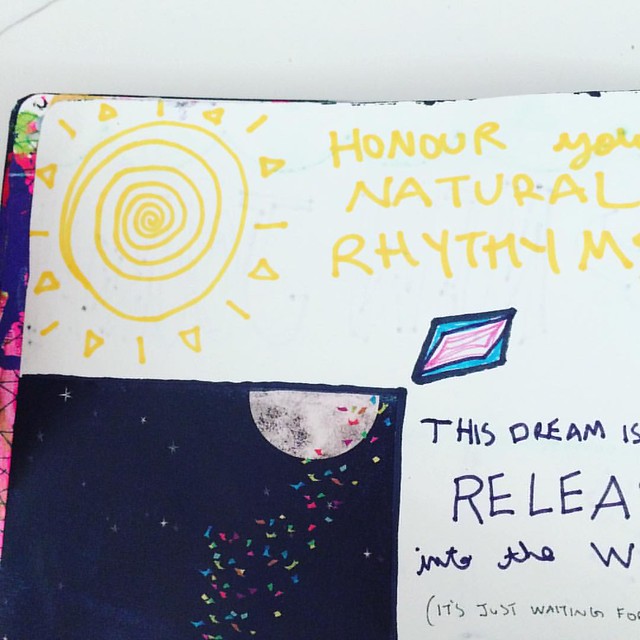 HONOUR you
NATURAL
RHYTHYMS
THIS DREAM IS
RELEA
into the W
(IT'S JUST WAITING FOR